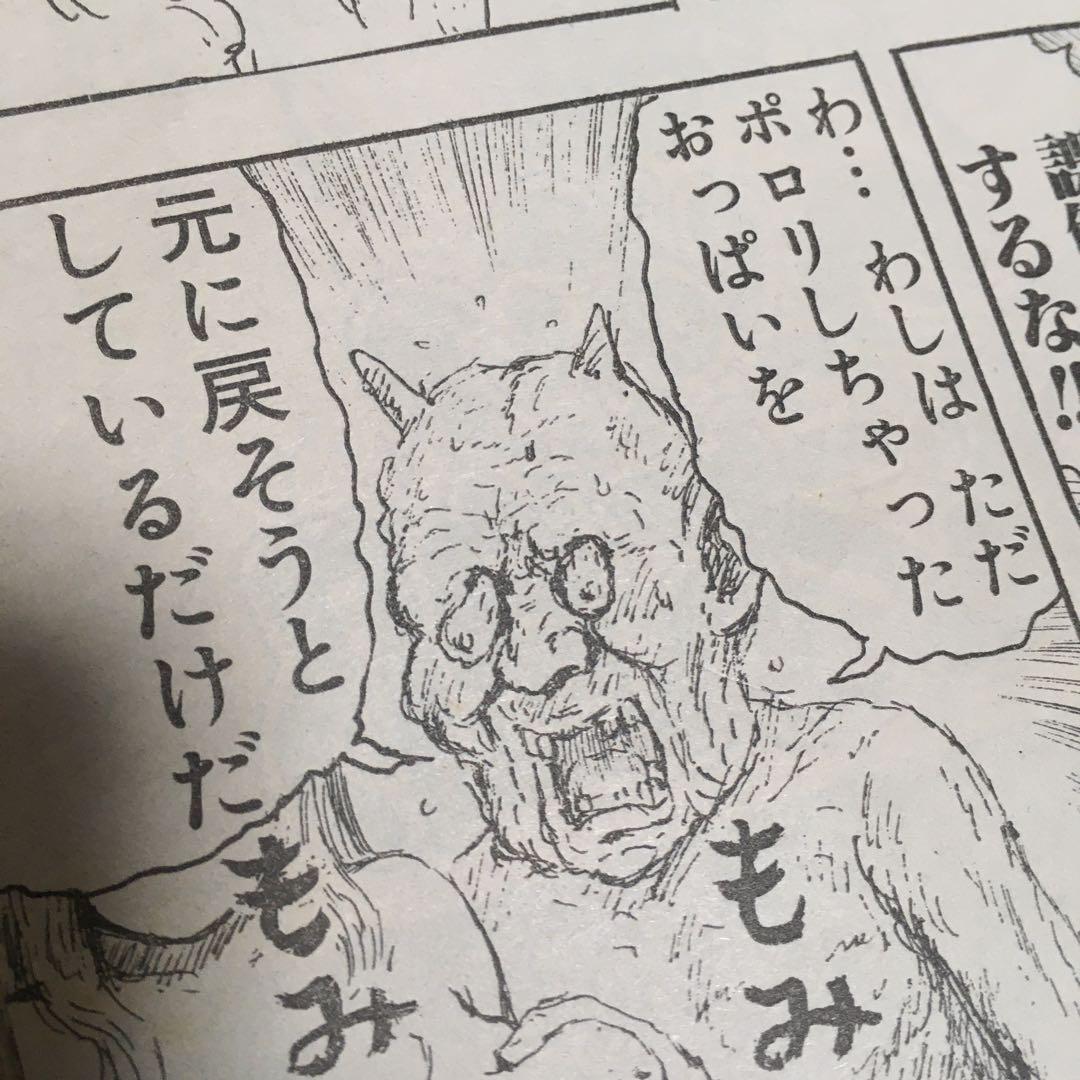 するな!!
わ…わしは ただ
ポロリしちゃった
おっぱいを
元に戻そうと
しているだけだ
もみ
もみ